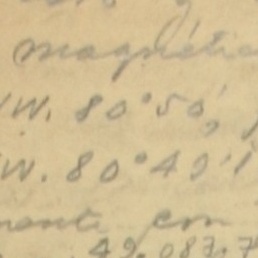 magnética
W. 80°50',
W. 80°49'1
con
49.087.7